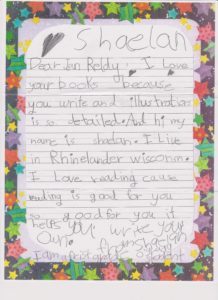 Shaelan
Dear Jan Reldy, I Love
your books because
you write and illustration
is so detailed. And hi my
name is shaelan. I live
in Rhinelander wisconin.
I Love reading cause
reading is good for you
so good for you it
helps you write your
Own.
I am a first grader